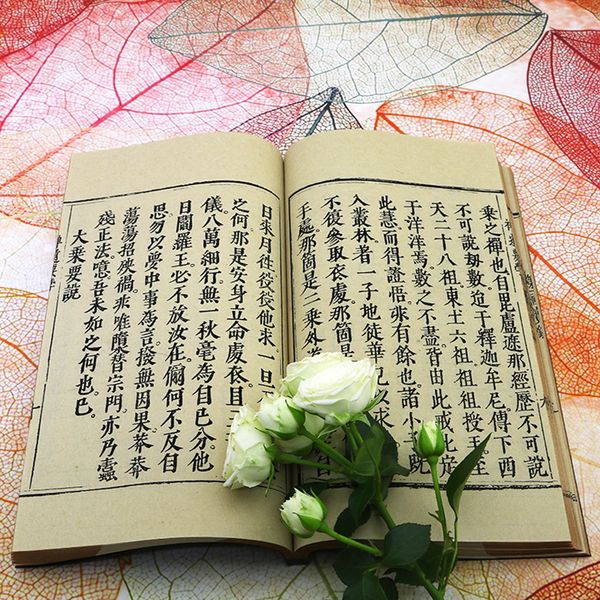 乘之禪也自毘盧遮那經歷不可說
不可說劫數迨于釋迦牟尼傳下西
天二十八祖東土六祖祖祖授受至
于洋洋焉數之不盡皆由此戒此定
此慧而得證悟非有餘也諸小
入叢林者一子地徒華已以
不復參取衣處那箇
手處那箇是二乘外
日來月徃役役他求一日
之何那是安身立命處衣
儀八萬細行無一秋毫為自已分他
日閻羅王必不放汝在爾何不反自
思勿以要中事為言撥無因果莽莽
蕩蕩招殃禍非唯隳替宗門亦乃蠹
殘正法噫吾未如之何也巳
大乘要說